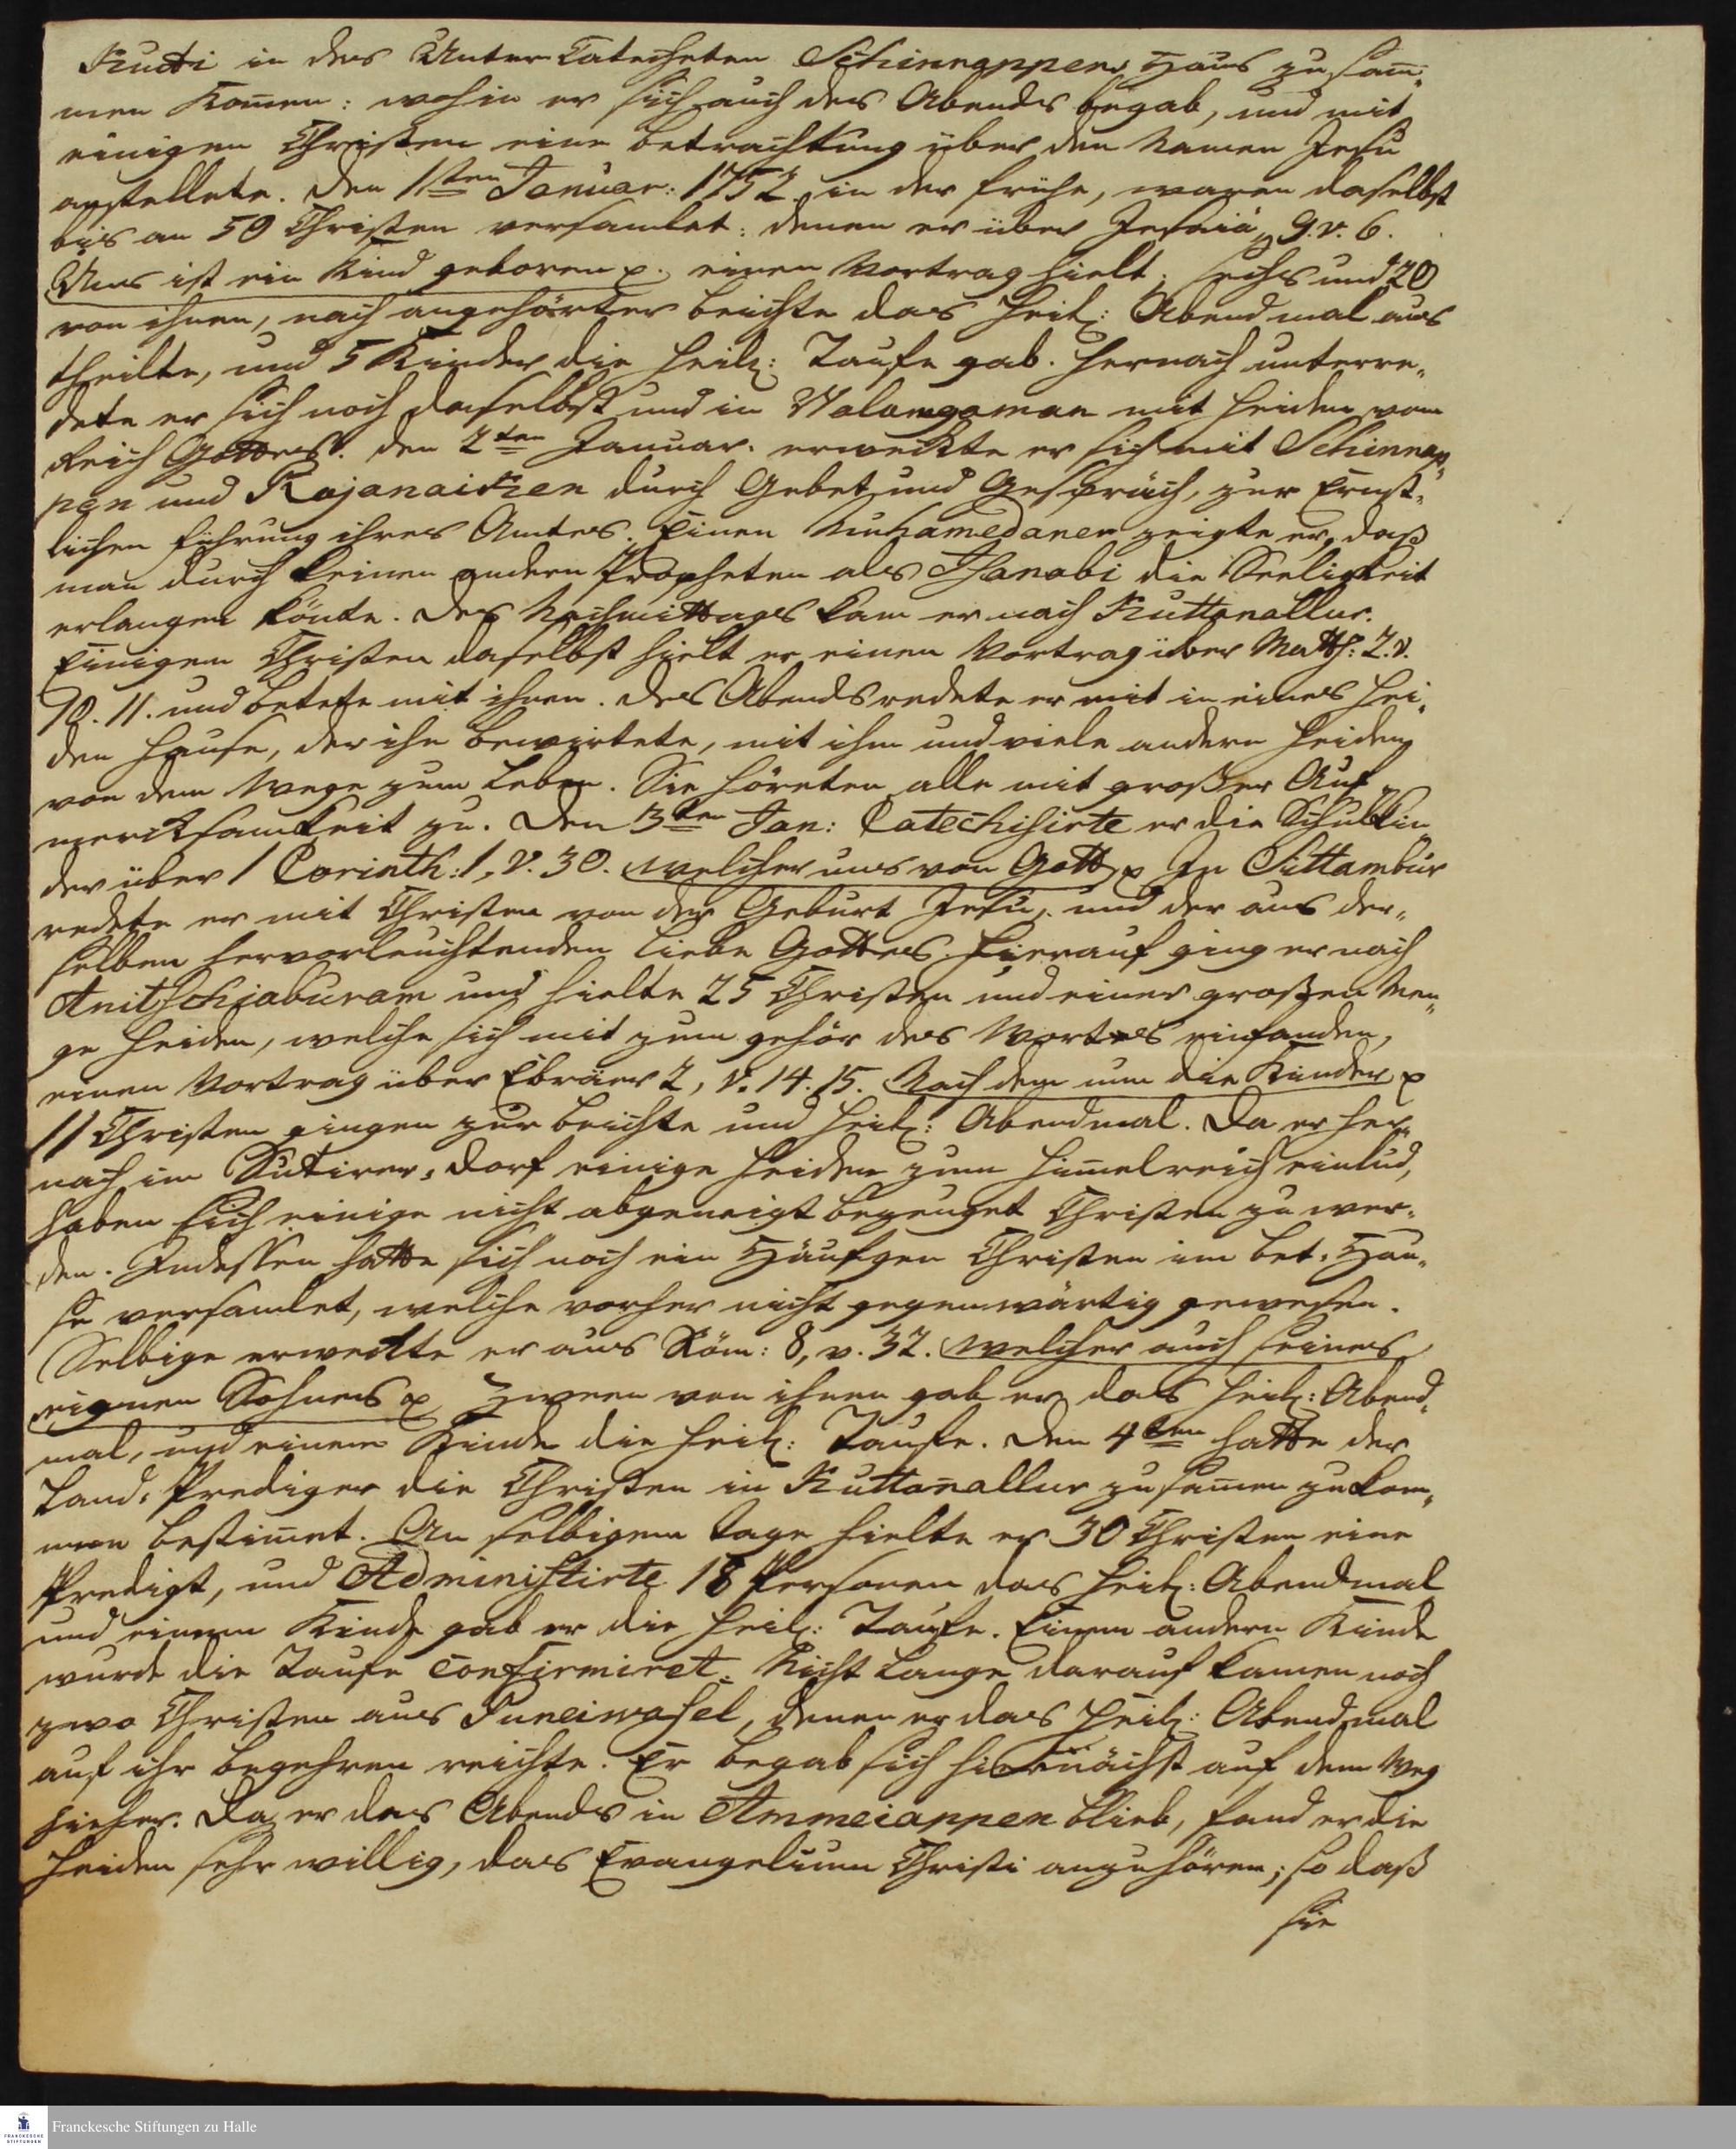 Kutti in des Unter Catecheten Schinnappens Haus zusam̅,
men kom̅en: wohin er sich auch des Abends begab, und mit
einigen Christen eine betrachtung über den Namen Jesu
anstellete. Den 1sten Januar: 1752. in der frühe, waren daselbst
bis an 50 Christen versamlet: denen er über Jesaiä, 9. v. 6.
Uns ist ein Kind geboren p. einen Vortrag hielt: sechs und 20
von ihnen, nach angehörter beichte das heil: Abendmal aus
theilte, und 5 Kinder die heil: Taufe gab. hernach unterre„
dete er sich noch daselbst und in Walangaman mit heiden vom
Reich Gottes. den 2ten Januar. erweckte er sich mit Schinnap„
pen und Rajanaicken durch Gebet und Gespräch, zur Ernst„
lichen führung ihres Amtes. Einen Muhamedaner zeigte er, daß
man durch keinen andern Propheten als Isanabi die Seeligkeit
erlangen könte. Des Nachmittags kam er nach Kuttanallur.
Einigen Christen daselbst hielt er einen Vortrag über Matth: 2. v.
10. 11. und betete mit ihnen. des Abends redete er mit in eines hei„
den Hause, der ihn bewirtete, mit ihm und viele andern heiden
von dem Wege zum Leben. Sie höreten alle mit großer Auf„
mercksamkeit zu. Den 3ten Jan: Catechisirte er die Schulkin„
der über 1 Corinth: 1, v. 30. welcher uns von Gott p In Sittambur
redete er mit Christen von der Geburt Jesu, und der aus der„
selben hervorleuchtenden Liebe Gottes. hierauf ging er nach
Anitschiaburam und hielte 25 Christen und einer großen Men„
ge heiden, welche sich mit zum gehör des Wortes einfanden,
einen Vortrag über Ebräer 2, v. 14. 15. Nach dem nun die Kinder p
11 Christen gingen zur beichte und heil: Abendmal. Da er her„
nach im Sutirer-dorf einige heiden zum him̅elreich einlud,
haben sich einige nicht abgeneigt bezeuget Christen zu wer„
den. Indessen hatte sich noch ein Häufgen Christen im Bet-Hau„
se versamlet, welche vorher nicht gegenwärtig gewesen.
Selbige erweckte er aus Röm: 8, v. 32. welcher auch seines
eignen Sohnes p Zween von ihnen gab er das heil: Abend„
mal, und einem Kinde die heil: Taufe. Den 4ten hatte der
Land-Prediger die Christen in Kuttanallur zusam̅en zu kom„
men bestim̅et. An selbigem Tage hielte er 30 Christen eine
Predigt, und Administirte 18 Personen das heil: Abendmal
und einem Kinde gab er die heil: Taufe. Einem andern Kinde
wurde die Taufe confirmiret. Nicht lange darauf kamen noch
zwo Christen aus Puneiwasel, denen er das heil: Abendmal
auf ihr begehren reichte. Er begab sich hiernächst auf dem Weg
hieher. Da er des Abends in Ammeiappen blieb, fand er die
heiden sehr willig, das Evangelium Christi anzuhören; so daß
sie
Franckesche Stiftungen zu Halle
FRANCKESCHE
STIFTUNGEN